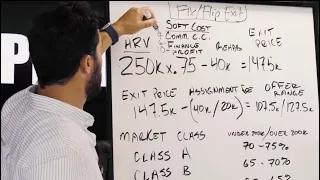 Fix/Flip Exit
SOFT COST
COMM. C.C.
FINANCE
PROFIT
ARV
REHAB
EXIT
PRICE
250K x .75 - 40K = 147.5K
EXIT PRICE ASSIGNMENT FEE OFFER RANGE
147.5K - (40K / 20K) = 107.5K / 127.5K
MARKET CLASS UNDER 200K/OVER 200K
CLASS A 70-75%
CLASS B 65-70%